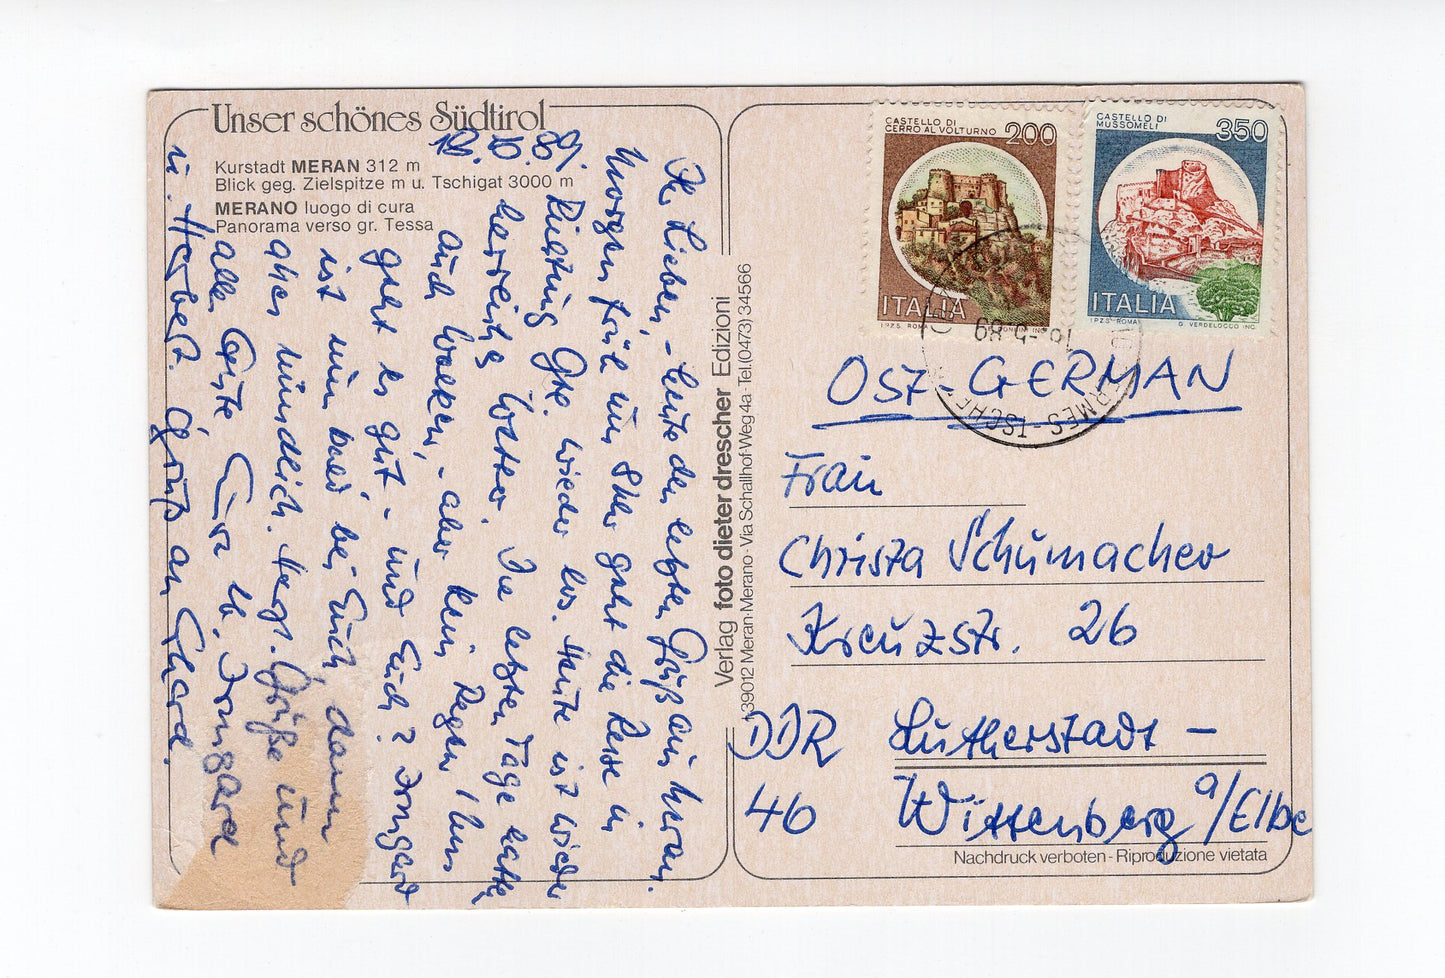 Unser schönes Südtirol
Kurstadt MERAN 312 m
Blick geg. Zielspitze m u. Tschigat 3000 m
MERANO luogo di cura
Panorama verso gr. Tessa
Ihr Lieben, - heute den letzten Gruß aus Meran.
Morgen früh um 8 Uhr geht die Reise in
Richtung Gr. wieder los. Heute ist wieder
herrliches Wetter. Die letzten Tage hatte
auch Wolken, - aber kein Regen! Uns
geht es gut - und Euch? Irmgard
ist nun bald bei Euch, dann
aber mündlich. Herzl. Grüße und
alles Gute Eure lb. Irmgard
u. Herbert. Gruß an Gerd.
Verlag foto dieter drescher Edizioni
I-39012 Meran-Merano - Via Schallhof-Weg 4a - Tel. (0473) 34566
CASTELLO DI
CERRO AL VOLTURNO 200
ITALIA
I.P.Z.S. ROMA
CASTELLO DI
MUSSOMELI 350
ITALIA
I.P.Z.S. ROMA G. VERDELOCCO INC.
16-5-89
OST-GERMAN
Frau
Christa Schumacher
Kreuzstr. 26
DDR Lutherstadt -
46 Wittenberg a/Elbe
Nachdruck verboten - Riproduzione vietata